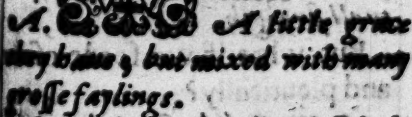 A. A little grace
they haue, but mixed with many
grosse faylings.